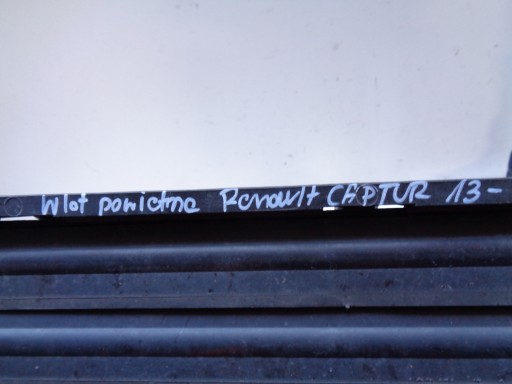 Wlot powietrza Renault CAPTUR 13-